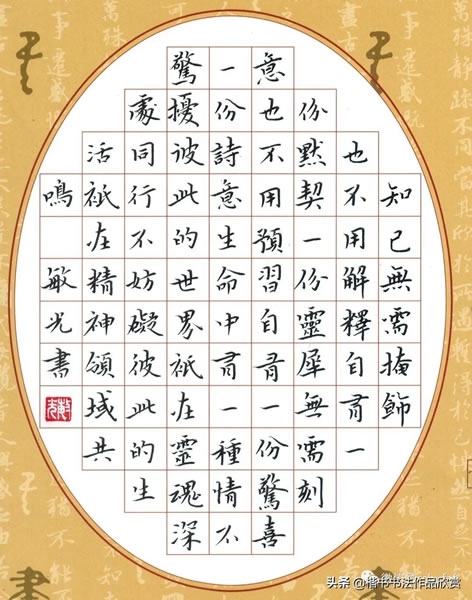 知己無濡掩飾
也不用解釋自有一
份默契一份靈犀無濡刻
意也不用預習自有一份驚喜
一份詩意生命中有一種情不
驚擾彼此的世界祇在靈魂深
處同行不妨礙彼此的生
活祇在精神領域共
鳴
敏光書
头条 @楷书书法作品欣赏